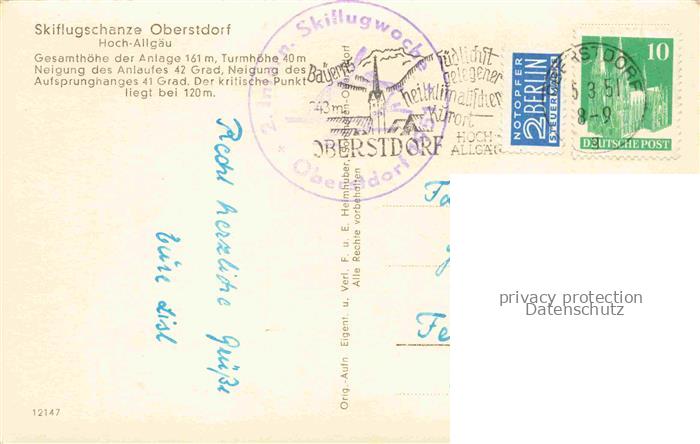 Skiflugschanze Oberstdorf
Hoch-Allgäu
Gesamthöhe der Anlage 161 m, Turmhöhe 40 m
Neigung des Anlaufes 42 Grad, Neigung des
Aufsprunghanges 41 Grad. Der kritische Punkt
liegt bei 120 m.
2. Intern. Skiflugwoche
Oberstdorf
Bayerns
südlichst
gelegener
heilklimatischer
Kurort
843 m
HOCH-
ALLGÄU
OBERSTDORF
NOTOPFER
2 BERLIN
STEUERMARKE
10
DEUTSCHE POST
OBERSTDORF
5.3.51
8-9
Recht herzliche Grüße
Eure Lisl
Orig.-Aufn. Eigent. u. Verl. F. u. E. Heimhuber, Sonthofen-Oberstdorf
Alle Rechte vorbehalten
Fa
Fe
12147
privacy protection
Datenschutz